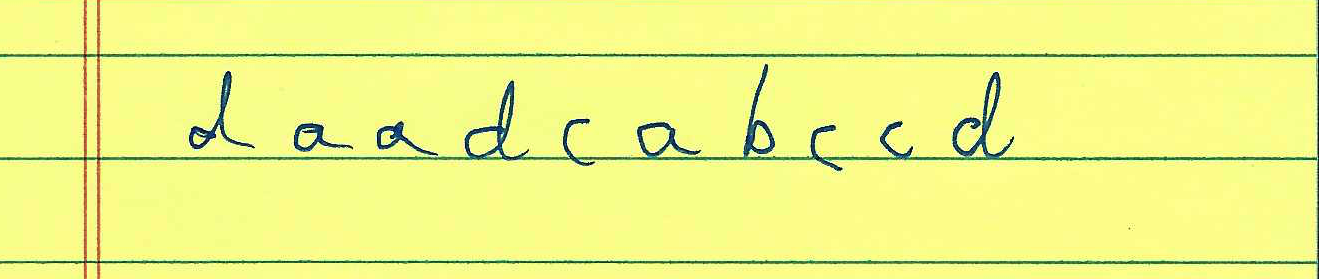 d a a d c a b c c d